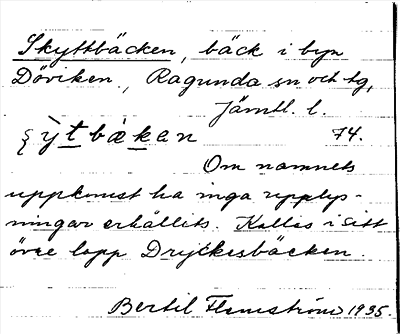 Skyttbäcken, bäck i byn
Döviken, Ragunda sn och tg,
Jämtl. l.
ʂỳtbàkan 74.
Om namnets
uppkomst ha inga upplys-
ningar erhållits. Kallas i sitt
övre lopp Dryckesbäcken.
Bertil Flemström 1935.